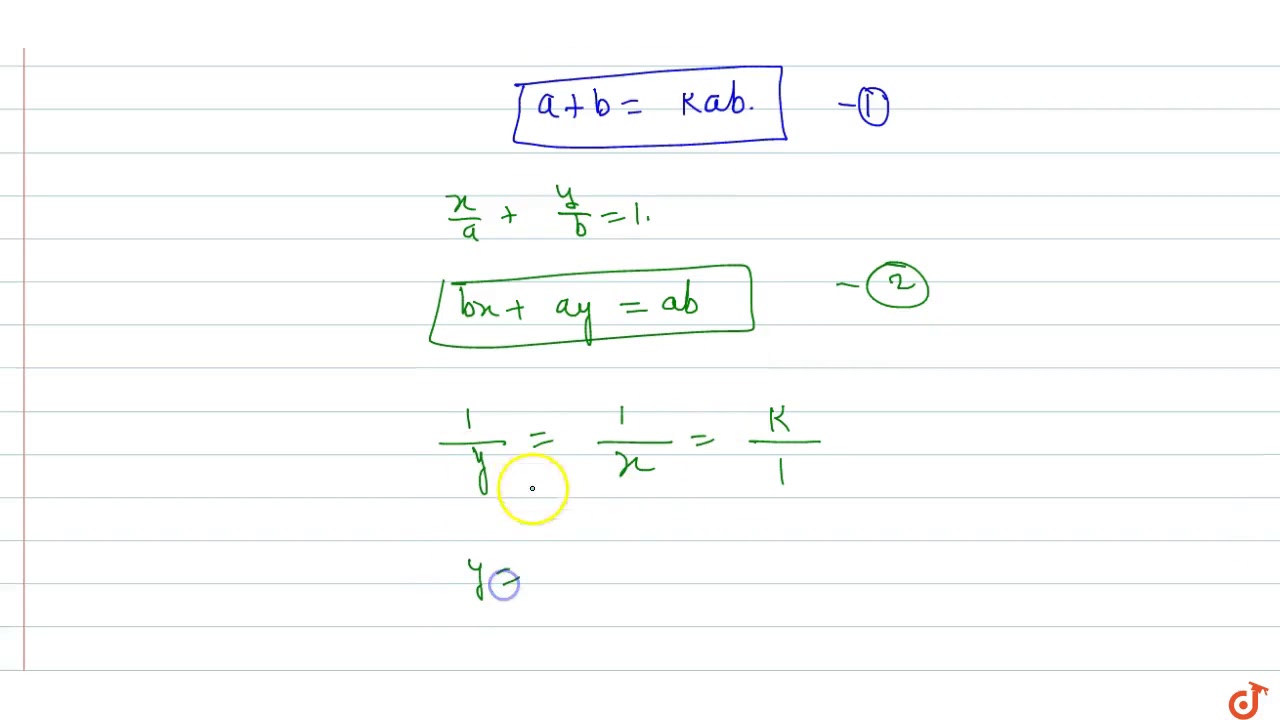 a + b = Kab. - ①
x/a + y/b = 1.
bx + ay = ab - ②
1/y = 1/x = K/1
y =